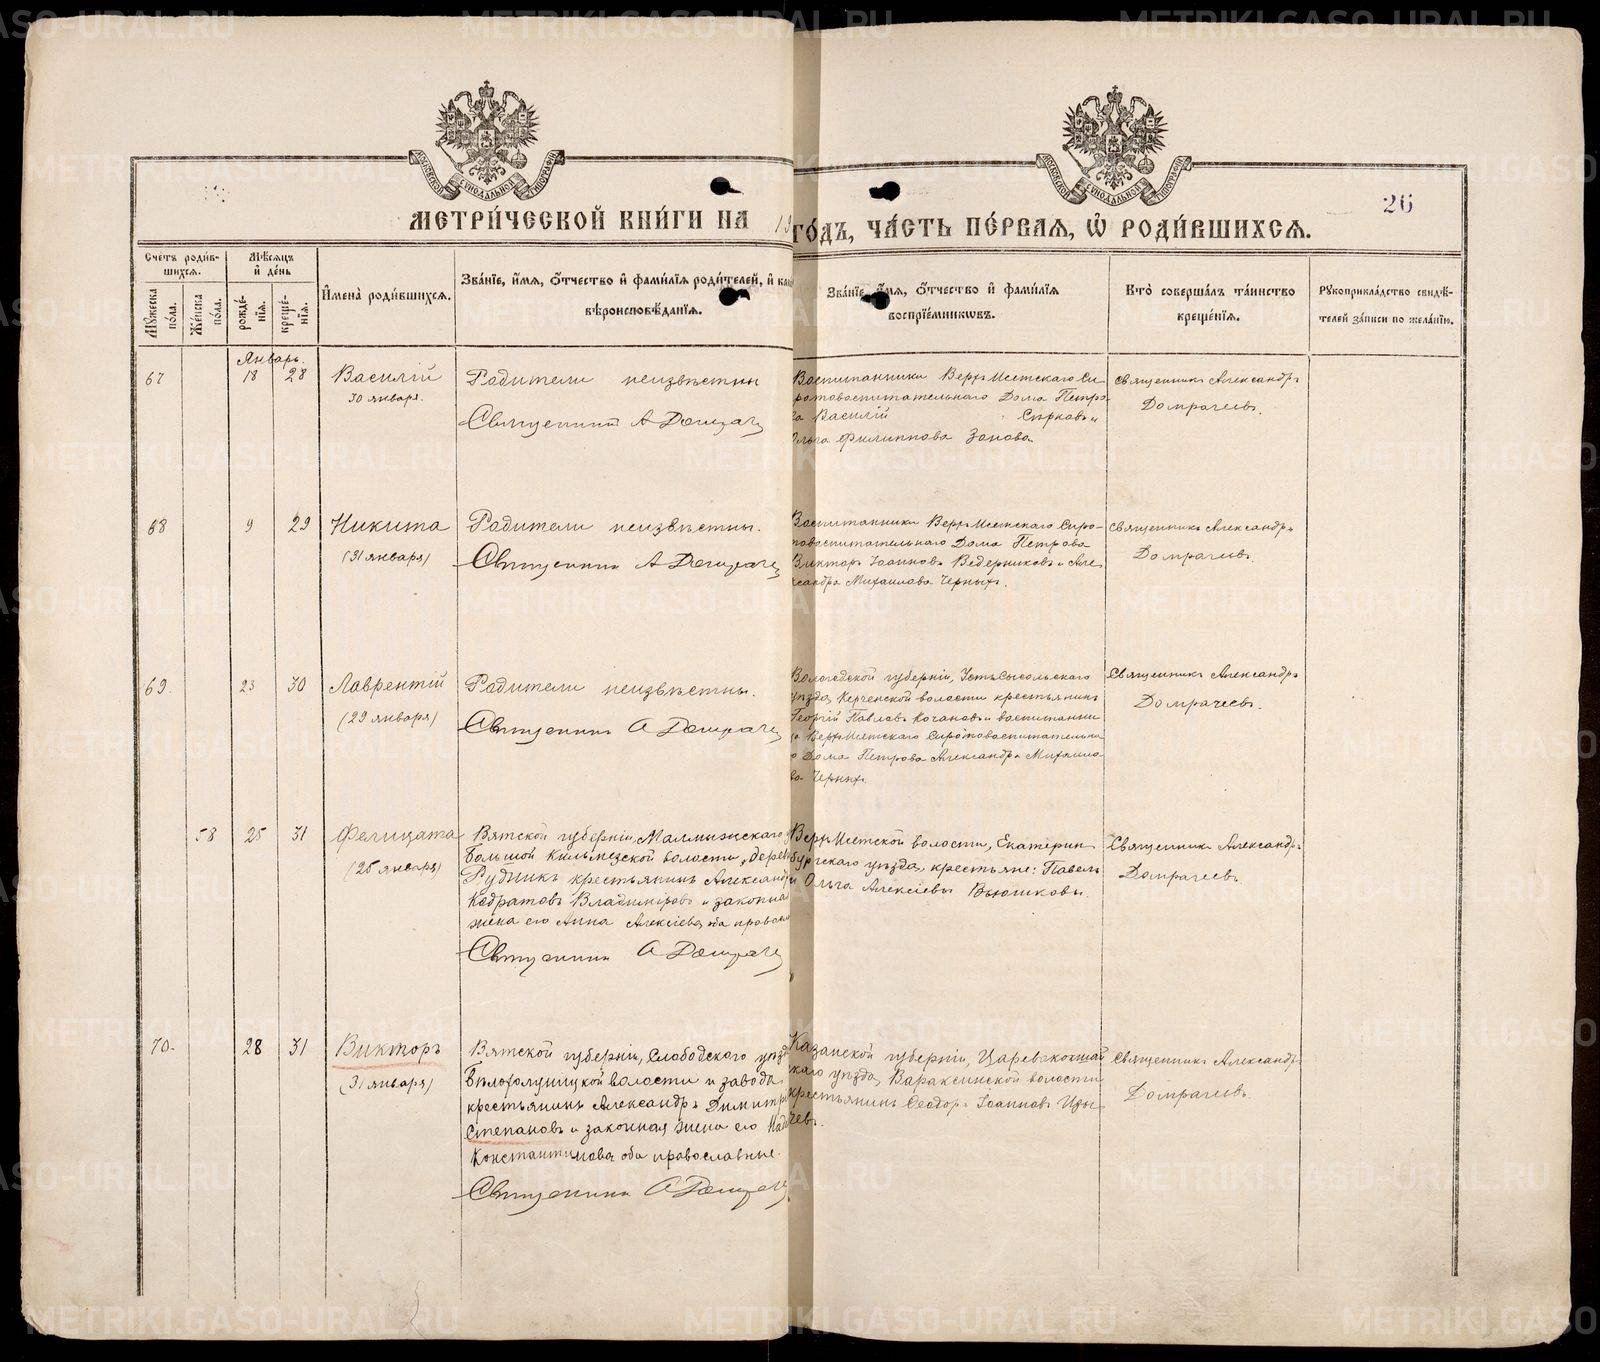 26
МЕТРИ́ЧЕСКОЙ КНИ́ГИ НА 19
ГО́ДЪ, ЧА́СТЬ ПЕ́РВАЯ, Ѽ РОДИ́ВШИХСѦ.
Сче́тъ роди́в-
шихсѧ.
Мѹ́жеска по́ла.
Же́нска по́ла.
Мѣ́сѧцъ и҆ де́нь
рожде́-нїѧ.
креще́-нїѧ.
И҆мена̀ роди́вшихсѧ.
Зва́нїе, и҆́мѧ, ѻ҆́тчество и҆ фами́лїѧ роди́телей, и҆
вѣроисповѣ́данїѧ.
Зва́нїе, и҆́мѧ, ѻ҆́тчество и҆ фами́лїѧ
воспрїе́мникѡвъ.
Кто̀ соверша́лъ та́инство
креще́нїѧ.
Рѹкоприкла́дство свидѣ́-
телей за́писи по жела́нїю.
Январь.
67
18
28
Василій
30 января.
Родители неизвѣстны
Священникъ А Домраче
Воспитанники Верхъ Исетскаго Си
ротовоспитательнаго Дома Петро
Василій Сѣрковъ и
Ольга Филиппова Зонова
Священникъ Александръ
Домрачеевъ.
68
9
29
Никита
(31 января)
Родители неизвѣстны.
Священникъ А Домраче
Воспитанники Верхъ Исетскаго Сиро-
товоспитательнаго Дома Петрова
Викторъ Іоанновъ Ведерниковъ и Але
ксандра Михаилова Черныхъ.
Священникъ Александръ
Домрачеевъ.
69.
23
30
Лаврентій
(29 января)
Родители неизвѣстны.
Священникъ А Домраче
Вологодской губерніи, Устьсысольскаго
уѣзда, Керченской волости крестьянинъ
Георгій Павловъ Кочановъ и воспитанни
Верхъ Исетскаго Сиротовоспитательна
Дома Петрова Александра Михаило
ва Черныхъ.
Священникъ Александръ
Домрачеевъ.
58
25
31
Фелицата
(25 января)
Вятской губерніи, Малмыжскаго
Большой Кильмезской волости, дерев
Рудникъ крестьянинъ Александр
Кодратовъ Владимировъ и законна
жена его Анна Алексіева оба правосл
Священникъ А Домраче
Верхъ Исетской волости, Екатерин
бургскаго уѣзда, крестьяне: Павелъ
и Ольга Алексіевы Вьюшковы.
Священникъ Александръ
Домрачеевъ.
70.
28
31
Викторъ
(31 января)
Вятской губерніи, Слободского уѣзд
Бѣлохолуницкой волости и завода
крестьянинъ Александръ Димитрі
Степановъ и законная жена его Над
Константинова оба православные.
Священникъ А Домраче
Казанской губерніи, Царевококшай
скаго уѣзда, Вараксинской волости
крестьянинъ Ѳеодоръ Іоанновъ
чевъ.
Священникъ Александръ
Домрачеевъ.
METRIKI.GASO-URAL.RU